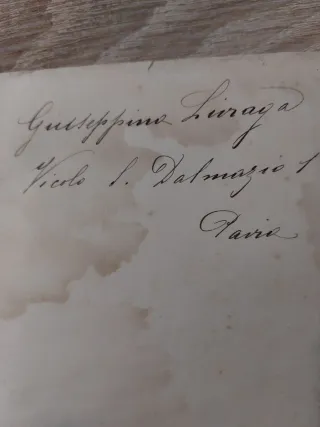 Giuseppina Livraga
Vicolo S. Dalmazio 1
Pavia